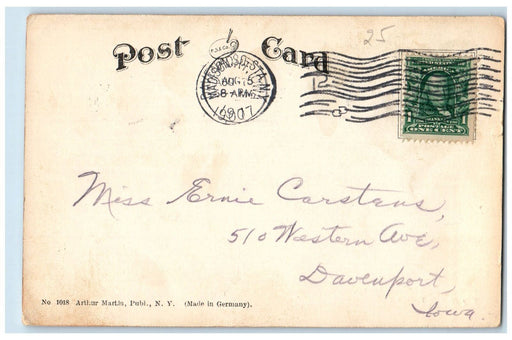 25
Post Card
MADISON SQ. STA. N.Y.
AUG 5
8 AM
1907
12
POSTAGE
ONE CENT
Miss Ernie Carstens,
510 Western Ave,
Davenport,
Iowa.
No 1018 Arthur Martin, Publ., N. Y. (Made in Germany).